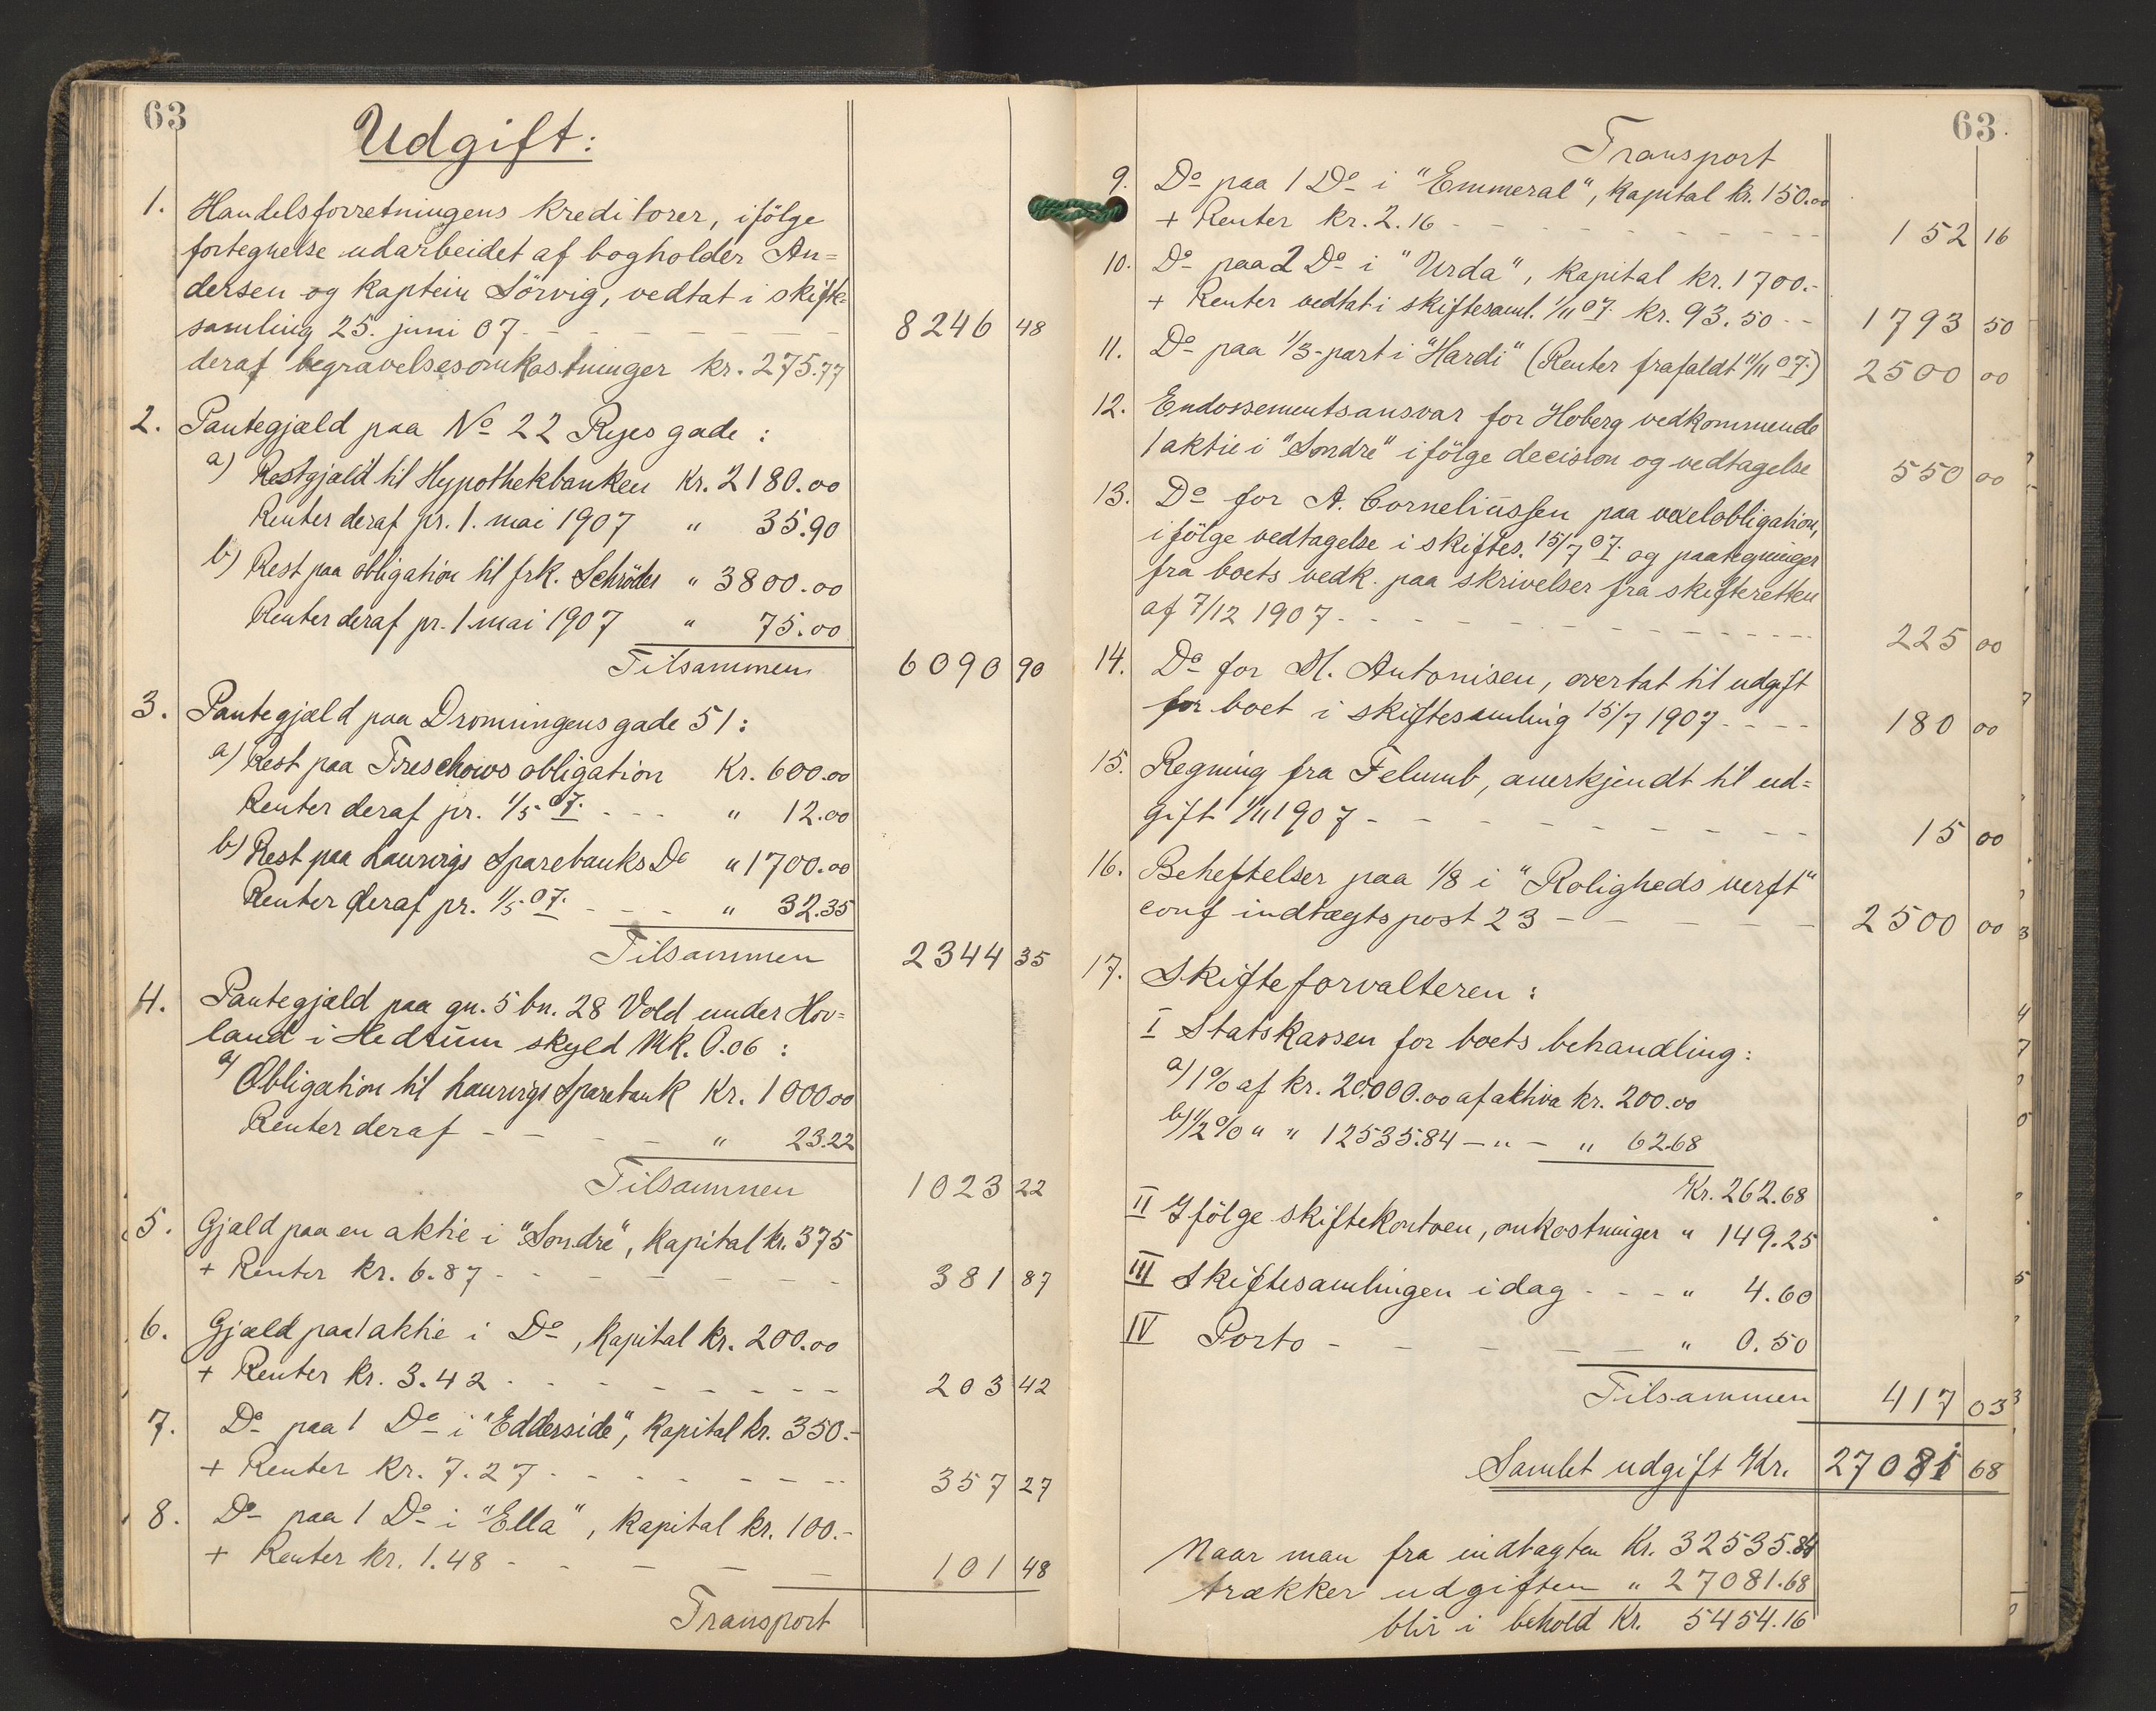 63
Udgift:
1. Handelsforretningens kreditorer, ifölge
fortegnelse udarbeidet af bogholder An=
dersen og kaptein Sörvig, vedtat i skifte=
samling 25. juni 07 - - - - - - 8246 48
deraf begravelsesomkostninger kr. 275.77
2. Pantegjæld paa No 22 Ryes gade :
a) Restgjæld til Hypothekbanken Kr. 2180.00
Renter deraf pr. 1. mai 1907 " 35.90
b) Rest paa obligation til frk. Schröder " 3800.00
Renter deraf pr. 1 mai 1907 " 75.00
Tilsammen 6090 90
3. Pantegjæld paa Dronningens gade 51 :
a) Rest paa Treschows obligation Kr. 600.00
Renter deraf pr. 1/5 07. - - - " 12.00
b) Rest paa Laurvigs Sparebanks Do " 1700.00
Renter deraf pr. 1/5 07. - - - " 32.35
Tilsammen 2344 35
4. Pantegjæld paa gn. 5 bn. 28 Vold under Hov=
land i Hedrum skyld Mk. 0.06 :
a) Obligation til Laurvigs Sparebank Kr. 1000.00
Renter deraf - - - - " 23.22
Tilsammen 1023 22
5. Gjæld paa en aktie i "Söndre", kapital kr. 375
+ Renter kr. 6.87 - - - - - - - 381 87
6. Gjæld paa 1 aktie i Do, kapital kr. 200.00
+ Renter kr. 3.42 - - - - - - - - 203 42
7. Do paa 1 Do i "Edderside", kapital kr. 350.-
+ Renter kr. 7.27 - - - - - - - - 357 27
8. Do paa 1 Do i "Ella", kapital kr. 100.-
+ Renter kr. 1.48 - - - - - 101 48
Transport
63
Transport
9. Do paa 1 Do i "Emmeral", kapital kr. 150.00
+ Renter kr. 2.16 - - - - - - - - - 152 16
10. Do paa 2 Do i "Urda", kapital kr. 1700.-
+ Renter vedtat i skiftesaml. 1/11 07. kr. 93.50 - - 1793 50
11. Do paa 1/3-part i "Hardi" (Renter frafaldt 11/11 07.) 2500 00
12. Endossementsansvar for Hoberg vedkommende
1 aktie i "Söndre" ifölge decision og vedtagelse 550 00
13. Do for A. Corneliussen paa vexelobligation,
ifölge vedtagelse i skiftes. 15/7 07. og paategninger
fra boets vedk. paa skrivelser fra skifteretten
af 7/12 1907 - - - - - - - - - - - 225 00
14. Do for M. Antonisen, overtat til udgift
for boet i skiftesamling 15/7 1907 - - - - 180 00
15. Regning fra Felumb, anerkjendt til ud=
gift 1/11 1907 - - - - - - - - - 15 00
16. Beheftelser paa 1/8 i "Roligheds verft"
conf indtægtspost 23 - - - - - 2500 00
17. Skifteforvalteren :
I Statskassen for boets behandling :
a) 1% af kr. 20.000.00 af aktiva kr. 200.00
b) 1/2% " " 12535.84 - " - " 62.68
Kr. 262.68
II Ifölge skiftekontoen, omkostninger " 149.25
III Skiftesamlingen idag - - - " 4.60
IV Porto - - - - - " 0.50
Tilsammen 417 03
Samlet udgift Kr. 27081 68
Naar man fra indtægten Kr. 32535.84
trækker udgiften " 27081.68
blir i behold Kr. 5454.16